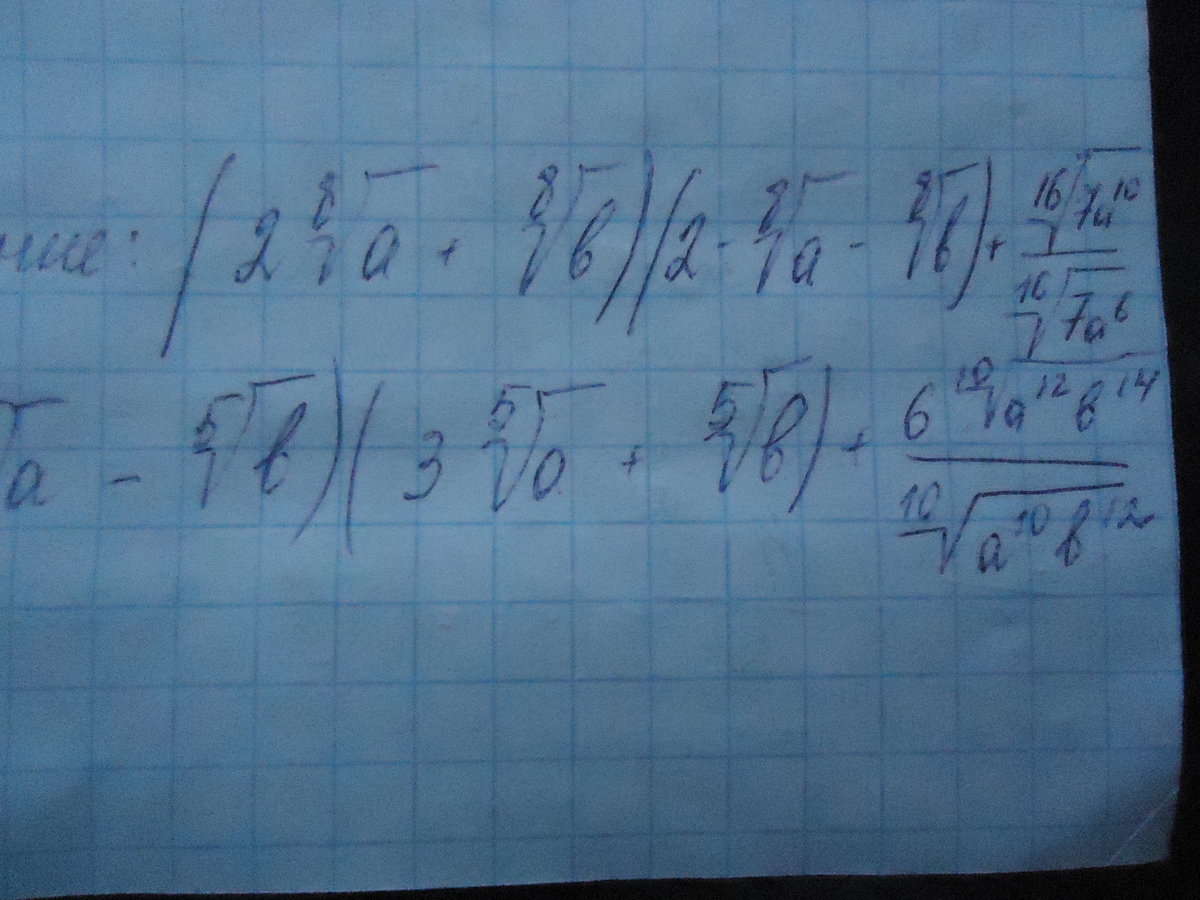 ние: (2 ⁸√a + ⁸√b)(2 · ⁸√a - ⁸√b) + ¹⁶√7a¹⁰ / ¹⁶√7a⁶
√a - ⁵√b)(3 ⁵√a + ⁵√b) + 6 ¹⁰√a¹²b¹⁴ / ¹⁰√a¹⁰b¹²